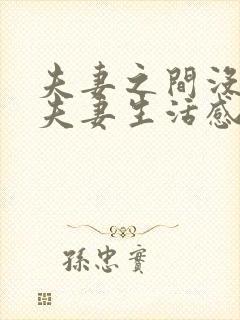 夫妻之間沒
夫妻生活感
孫忠實